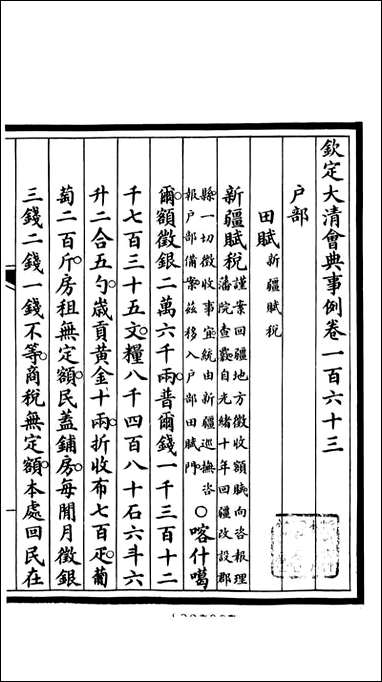 欽定大清會典事例卷一百六十三
戶部
田賦新疆賦稅
新疆賦稅謹案回疆地方徵收額賦向咨報理
藩院查覈自光緒十年回疆改設郡
縣一切徵收事宜統由新疆巡撫咨
報戶部備案茲移入戶部田賦門○喀什噶
爾額徵銀二萬六千兩普爾錢一千三百十二
千七百三十五文糧八千四百八十石六斗六
升二合五勺歲貢黃金十兩折收布七百疋葡
萄二百斤房租無定額民蓋鋪房每閒月徵銀
三錢二錢一錢不等商稅無定額本處回民在